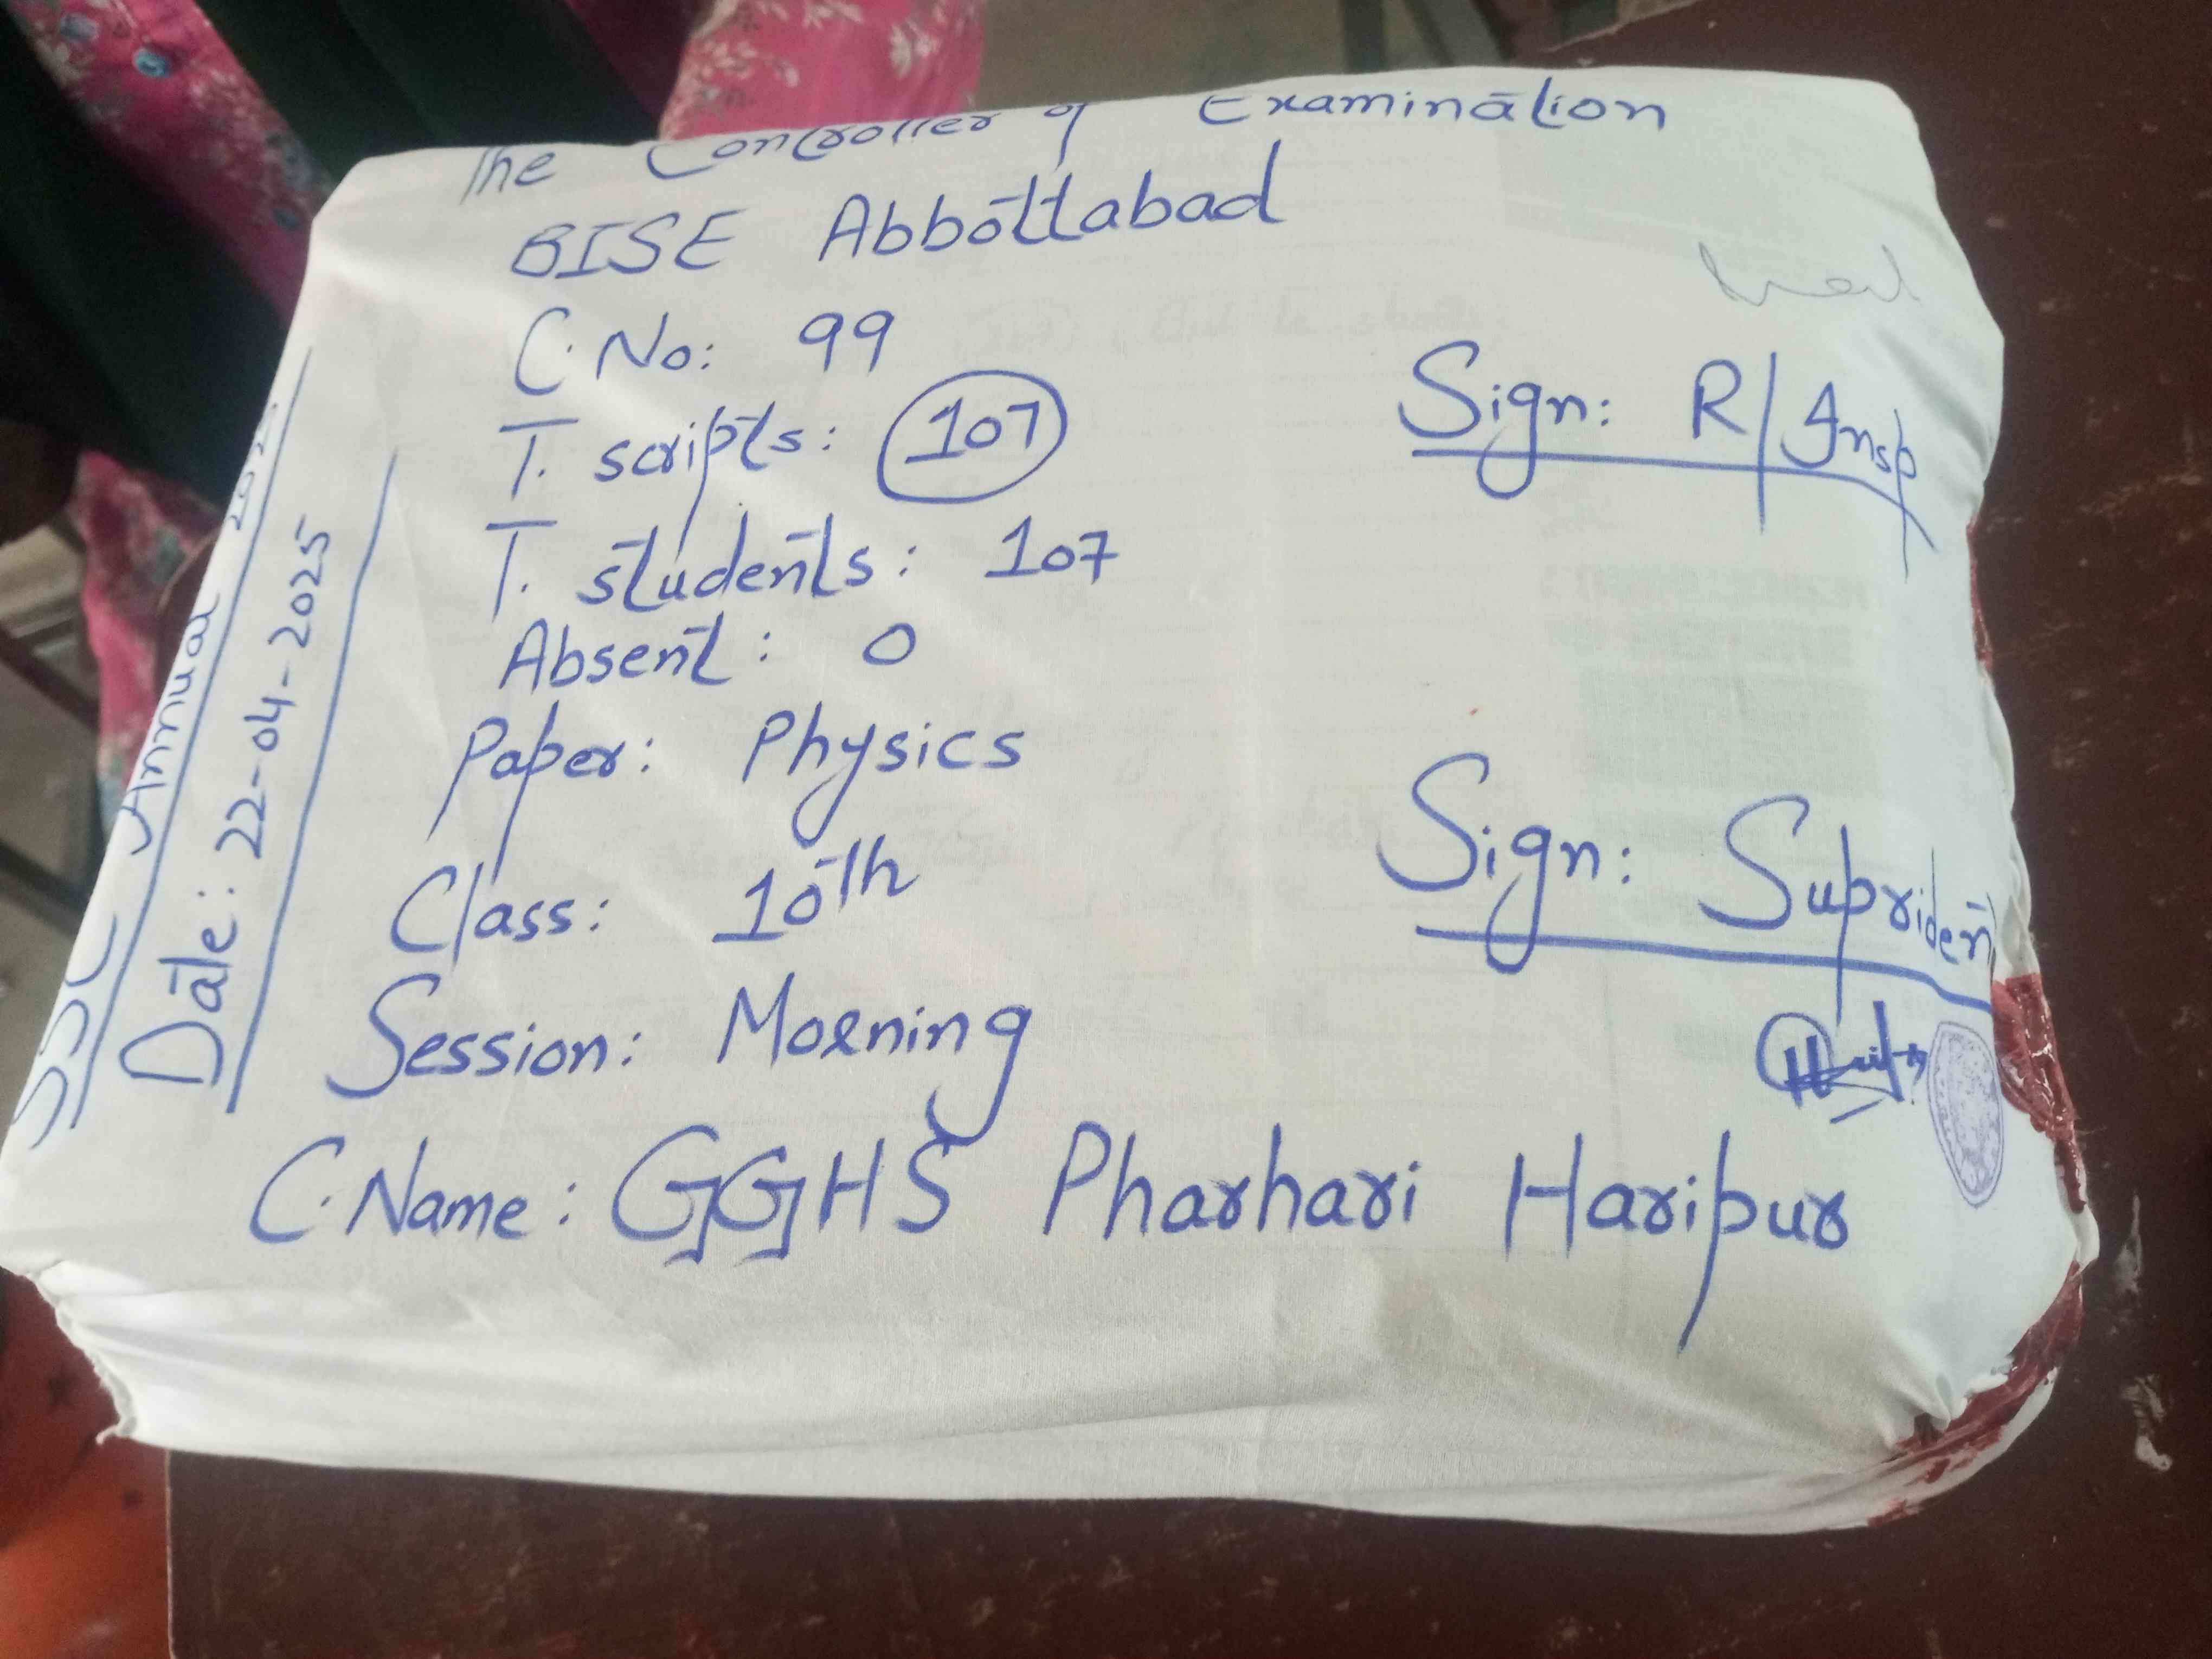 The Controller of Examination
BISE Abbottabad
C. No: 99
T. scripts: 107
T. students: 107
Absent: 0
Paper: Physics
Class: 10th
Session: Morning
C. Name: GGHS Pharhari Haripur
Sign: R/Insp
Sign: Supriden
SSC Annual
Date: 22-04-2025